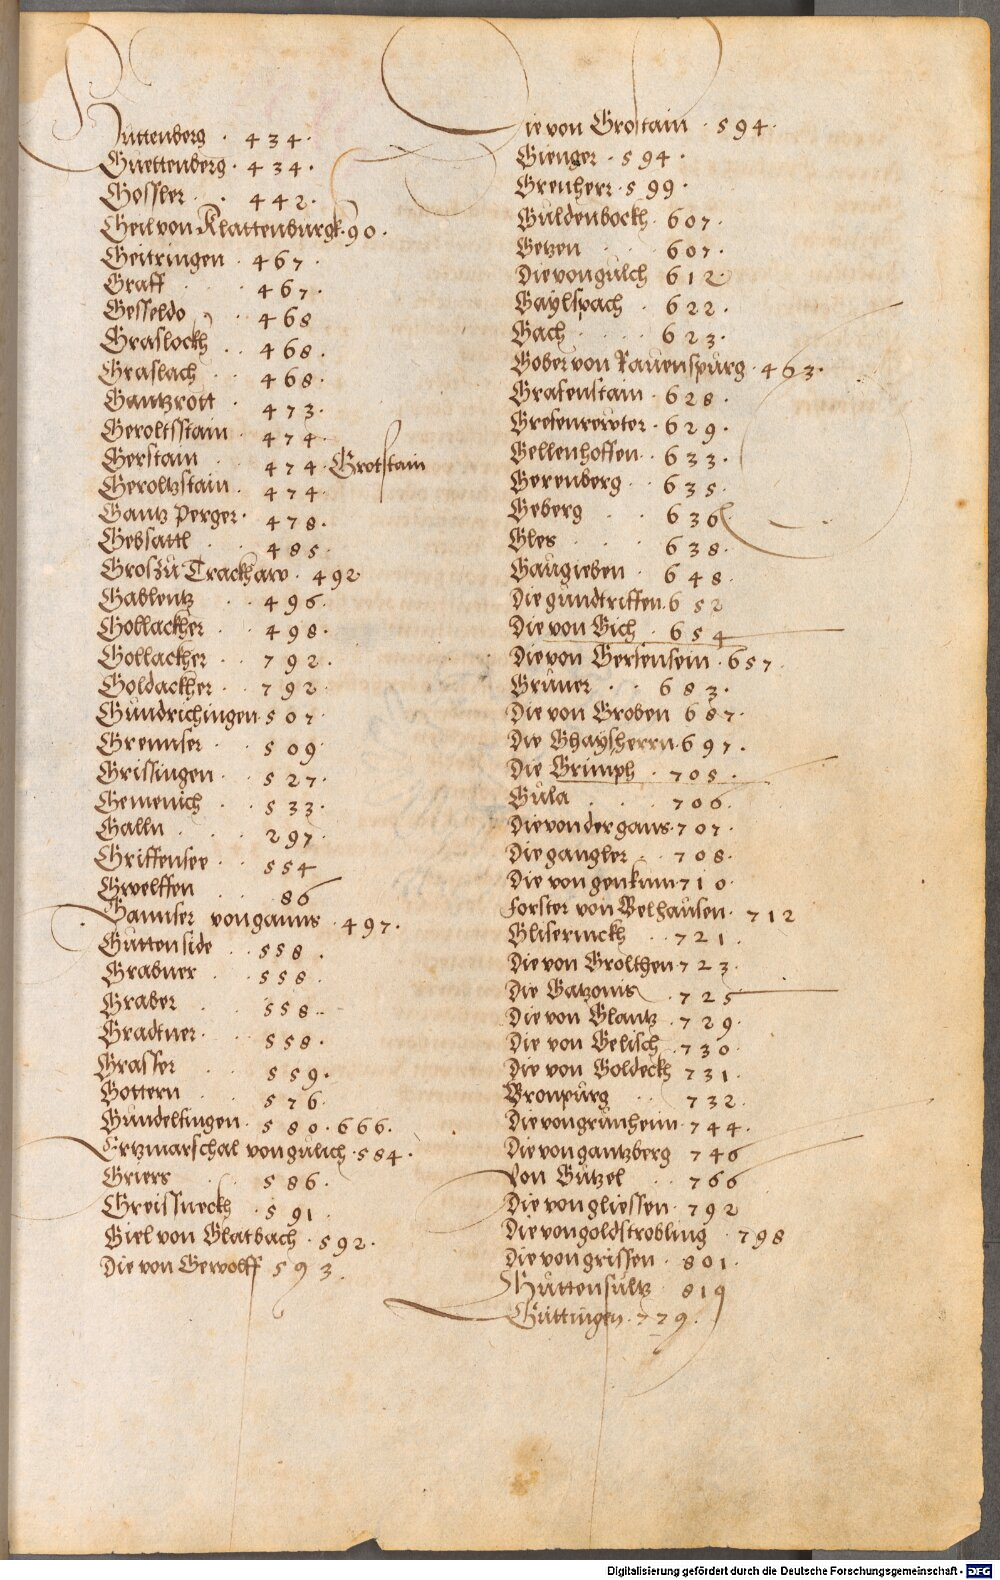 Guttenberg · 434 ·
Guettenberg · 434 ·
Gossler · · 442 ·
Geil von Klattenburgk · 90 ·
Geitringen · 467 ·
Graff · · 467 ·
Gesseldo · 468
Graslockh · · 468 ·
Graslach · · 468 ·
Gantzrott · 473 ·
Geroltsstain · 474 ·
Gerstain · · 474 · Grotstain
Geroltzstain · 474 ·
Gantz Perger · 478 ·
Gebsattl · · 485 ·
Gros zů Trackhaw · 492
Gablentz · · 496 ·
Gollackher · · 498 ·
Gollackher · · 792 ·
Goldackher · · 792 ·
Gůndrichingen · 507 ·
Grennser · · 509
Grissingen · · 527 ·
Gemenich · · 533 ·
Galln · · 297 ·
Griffensee · · 554
Gwelffen · · 86
Gannser von ganns · 497 ·
Gůttenside · · 558 ·
Grabner · · 558 ·
Graber · · 558 ·
Gradtner · · 558 ·
Grasser · · 559 ·
Gottern · · 576 ·
Gůndelfingen · 580 · 666 ·
Ertzmarschal von gůlich · 584 ·
Griers · · 586 ·
Greissneckh · 591 ·
Giel von Glatbach · 592 ·
Die von Gerwolff 593 ·
Die von Grostain · 594 ·
Gienger · 594 ·
Grenherr · 599 ·
Gůldenbockh · 607 ·
Getzen · · 607 ·
Die von gůlch 612 ·
Gaylspach · 622 ·
Gach · · 623 ·
Gober von Rauenspůrg · 463 ·
Grafenstain · 628 ·
Grefenrewter · 629 ·
Gellenhoffen · · 633 ·
Gerenberg · · 635 ·
Geberg · · 636
Gles · · 638 ·
Gaůgieben · 648 ·
Die gůndtriffen · 652
Die von Gich · 654
Die von Gertensein · 657 ·
Grůner · · 683 ·
Die von Groben 687 ·
Die Ghaysherrn · 697 ·
Die Grimph · 705 ·
Gůla · · 706 ·
Die von der gans · 707 ·
Die gangler · 708 ·
Die von 710 ·
Forster von Gelhaůsen · 712
Gliserinckh · · 721 ·
Die von Grolthen 723 ·
Die Gatzonis · 725
Die von Glantz · 729 ·
Die von Gelisch · 730 ·
Die von Goldeckh 731 ·
Gronpůrg · · 732 ·
Die von grůnheim · 744 ·
Die von gantzberg 746
Von Gůtzel · · 766
Die von gliessen · 792
Die von goldstrobling · 798
Die von grissen · 801 ·
Gůttensůltz · 819
Gůttingen · 779 ·
Digitalisierung gefördert durch die Deutsche Forschungsgemeinschaft - DFG